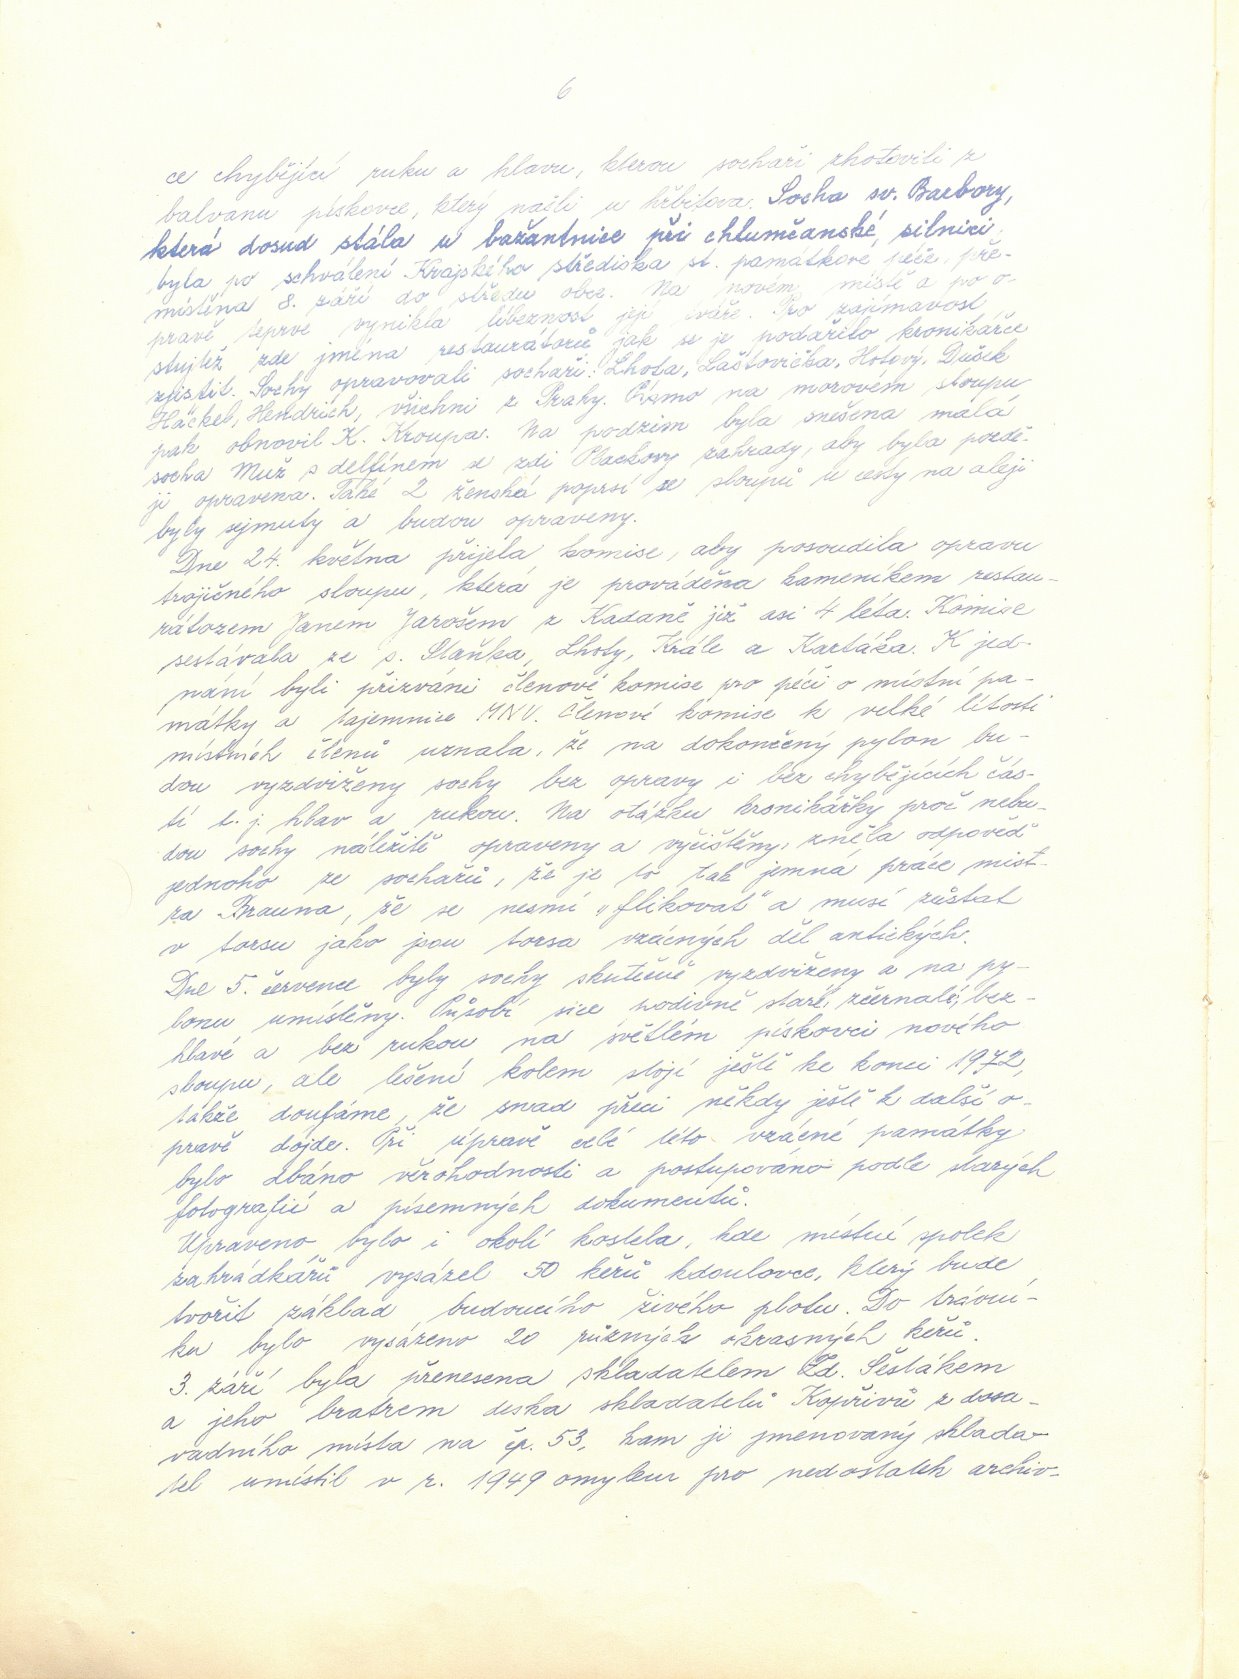 6
ce chybějící ruku a hlavu, kterou sochaři zhotovili z
balvanu pískovce, který našli u hřbitova. Socha sv. Barbory,
která dosud stála u bažantnice při chlumčanské silnici,
byla po schválení Krajského střediska st. památkové péče, pře-
místěna 8. září do středu obce. Na novém místě a po o-
pravě teprve vynikla líbeznost její tváře. Pro zajímavost
stujtež zde jména restaurátorů jak se je podařilo kronikářce
zjistit. Sochy opravovali sochaři: Lhota, Laštovička, Hotový, Dušek
Häckel, Hendrich, všichni z Prahy. Písmo na morovém sloupu
pak obnovil K. Kroupa. Na podzim byla snešena malá
socha Muž s delfínem ze zdi Plackovy zahrady, aby byla pozdě-
ji opravena. Také 2 ženská poprsí se sloupů u cesty na aleji
byly sejmuty a budou opraveny.
Dne 24. května přijela komise, aby posoudila opravu
trojičného sloupu, která je prováděna kameníkem restau-
rátorem Janem Jarošem z Kadaně již asi 4 léta. Komise
sestávala ze s. Staňka, Lhoty, Krále a Kartáka. K jed-
nání byli přizváni členové komise pro péči o místní pa-
mátky a tajemnice MNV. Členové komise k velké lítosti
místních členů uznala, že na dokončený pylon bu-
dou vyzdviženy sochy bez opravy i bez chybějících čás-
tí t. j. hlav a rukou. Na otázku kronikářky proč nebu-
dou sochy náležitě opraveny a vyčištěny, zněla odpověď
jednoho ze sochařů, že je to tak jemná práce mist-
ra Brauna, že se nesmí „flikovat" a musí zůstat
v torsu jako jsou torsa vzácných děl antických.
Dne 5. července byly sochy skutečně vyzdviženy a na py-
lonu umístěny. Působí sice podivně staré, zčernalé, bez-
hlavé a bez rukou na světlém pískovci nového
sloupu, ale lešení kolem stojí ještě ke konci 1972,
takže doufáme, že snad přeci někdy ještě k další o-
pravě dojde. Při úpravě celé této vzácné památky
bylo dbáno věrohodnosti a postupováno podle starých
fotografií a písemných dokumentů.
Upraveno bylo i okolí kostela, kde místní spolek
zahrádkářů vysázel 50 keřů kdoulovce, který bude
tvořit základ budoucího živého plotu. Do trávní-
ku bylo vysázeno 20 různých okrasných keřů.
3. září byla přenesena skladatelem Zd. Šestákem
a jeho bratrem deska skladatelů Kopřivů z dosa-
vadního místa na čp. 53, kam ji jmenovaný sklada-
tel umístil v r. 1949 omylem pro nedostatek archiv-